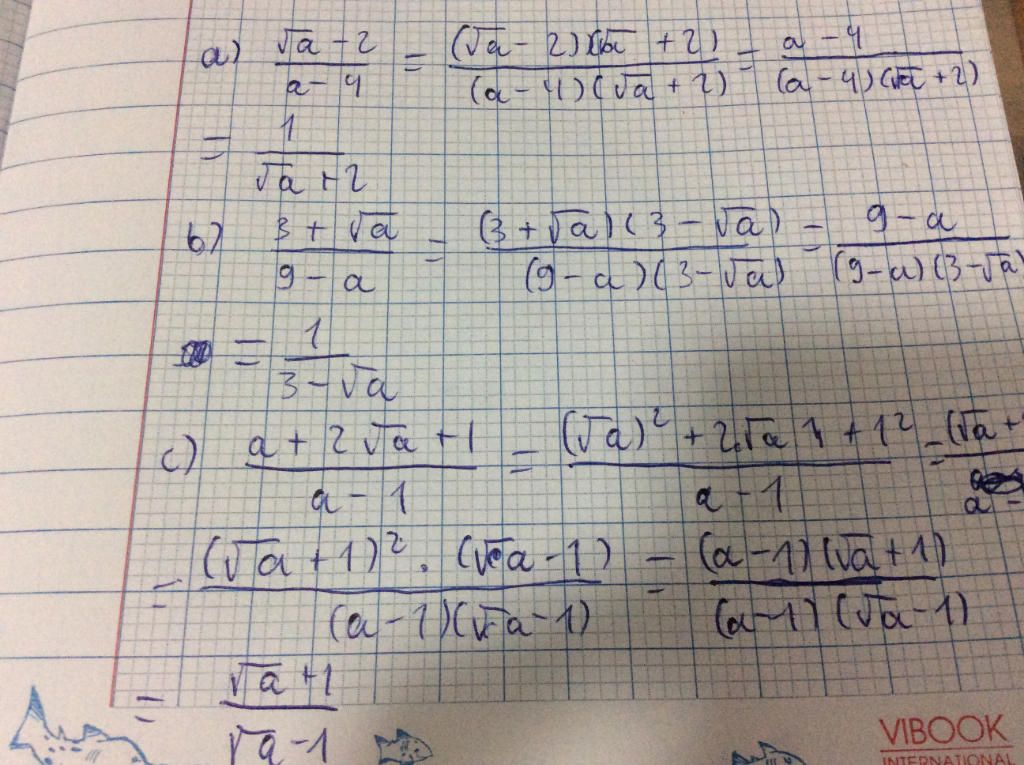 a) (√a - 2)/(a - 4) = ((√a - 2)(√a + 2))/((a - 4)(√a + 2)) = (a - 4)/((a - 4)(√a + 2))
= 1/(√a + 2)
b) (3 + √a)/(9 - a) = ((3 + √a)(3 - √a))/((9 - a)(3 - √a)) = (9 - a)/((9 - a)(3 - √a)
= 1/(3 - √a)
c) (a + 2√a + 1)/(a - 1) = ((√a)² + 2.√a.1 + 1²)/(a - 1) = (√a +/a -
= ((√a + 1)² . (√a - 1))/((a - 1)(√a - 1)) = ((a - 1)(√a + 1))/((a - 1)(√a - 1))
= (√a + 1)/(√a - 1)
VIBOOK
INTERNATIONAL